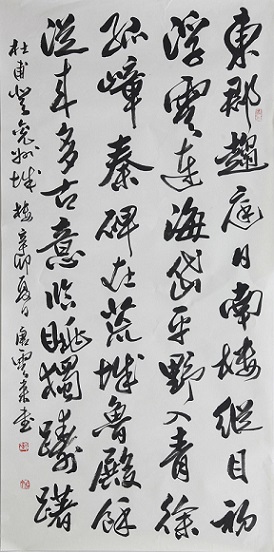 東郡趨庭日南樓縱目初
浮雲連海岱平野入青徐
孤嶂秦碑在荒城魯殿餘
從来多古意臨眺獨躊躇
杜甫登兖州城樓辛卯夏日唐雲来書